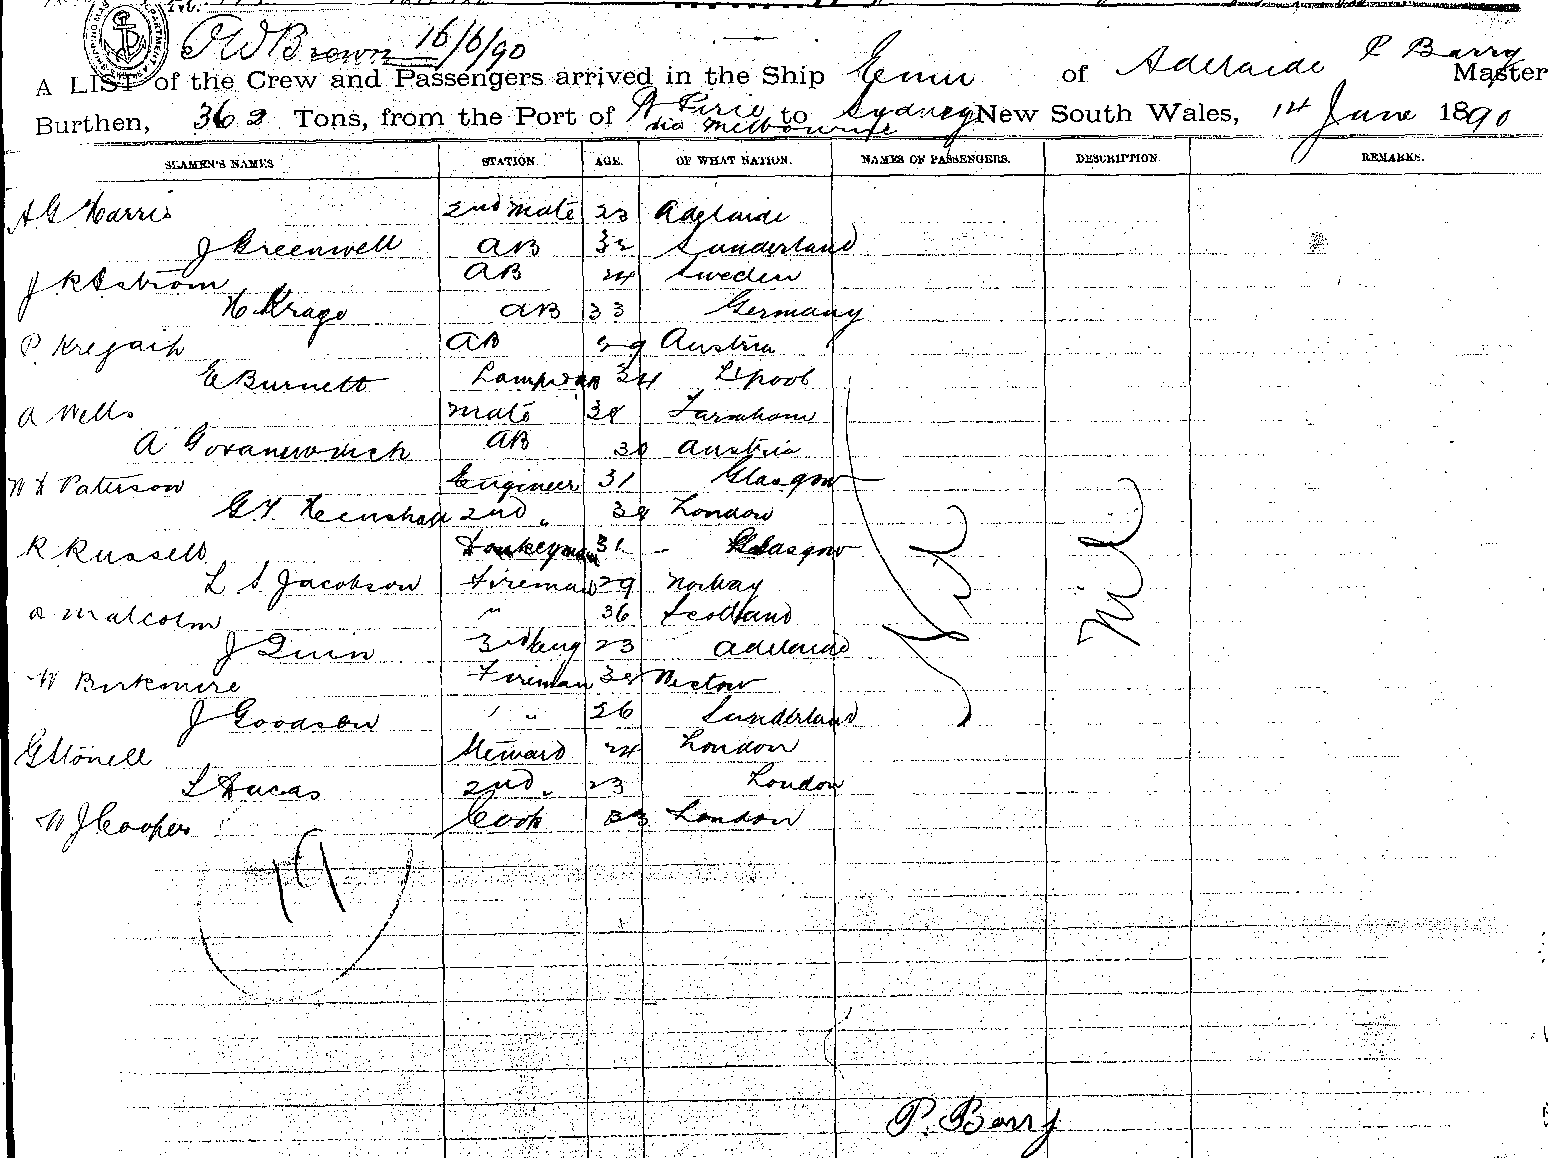 P W Brown 16/6/90
A LIST of the Crew and Passengers arrived in the Ship Emu of Adelaide P Barry Master
Burthen, 362 Tons, from the Port of P Pirie via Melbourne to Sydney New South Wales, 14 June 1890
SEAMEN'S NAMES STATION. AGE. OF WHAT NATION. NAMES OF PASSENGERS. DESCRIPTION. REMARKS.
A G Harris 2nd Mate 23 Adelaide
J Greenwell AB 32 Sunderland
J R Astrom AB 24 Sweden
H Krago AB 33 Germany
P AB 29 Austria
E Burnett 34 L'pool
A Wells Mate 38 Farnham
A AB 30 Austria
W H Paterson Engineer 31 Glasgow
G H Henshall 2nd " 38 London
R Russell Donkeyman 31 Glasgow
L S Jacobson Fireman 29 Norway
A Malcolm " 36 Scotland
J Quin 3rd Eng 23 Adelaide
W Birkmire Fireman 38
J Goodson " " 26 Sunderland
G Stonell Steward 24 London
L Ducas 2nd " 23 London
W J Cooper Cook 33 London
Nil Nil
19
P. Barry